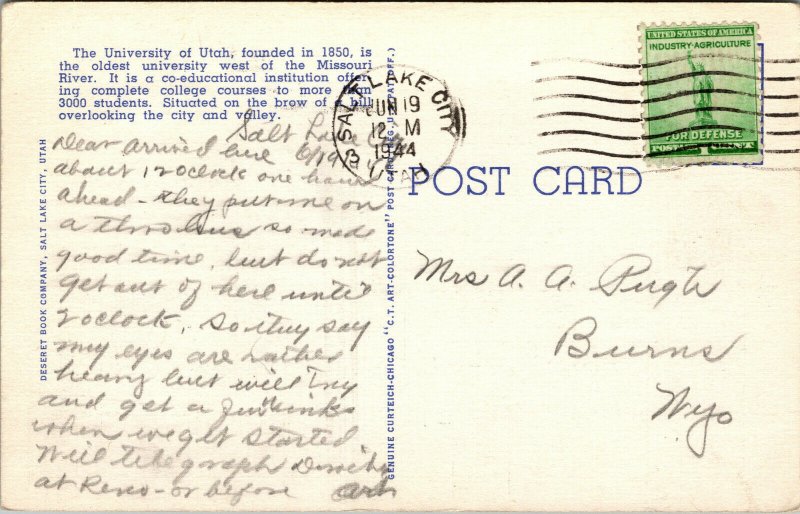 The University of Utah, founded in 1850, is
the oldest university west of the Missouri
River. It is a co-educational institution offer-
ing complete college courses to more than
3000 students. Situated on the brow of a hill
overlooking the city and valley.
Salt Lake
6/19
Dear arrived here
about 12 oclock one hour
ahead - they put me on
a thro bus so made
good time, but do not
get out of here until
2 oclock. So they say
my eyes are rather
heavy but will try
and get a few winks
when we get started
Will telegraph
at Reno - or before
DESERET BOOK COMPANY, SALT LAKE CITY, UTAH
GENUINE CURTEICH-CHICAGO "C.T. ART-COLORTONE" POST CARD (REG. U.S. PAT. OFF.)
SALT LAKE CITY
JUN 19
12 M
1944
3 UTAH
UNITED STATES OF AMERICA
INDUSTRY-AGRICULTURE
FOR DEFENSE
POSTAGE 1 CENT
POST CARD
Mrs A. A. Pugh
Burns
Wyo